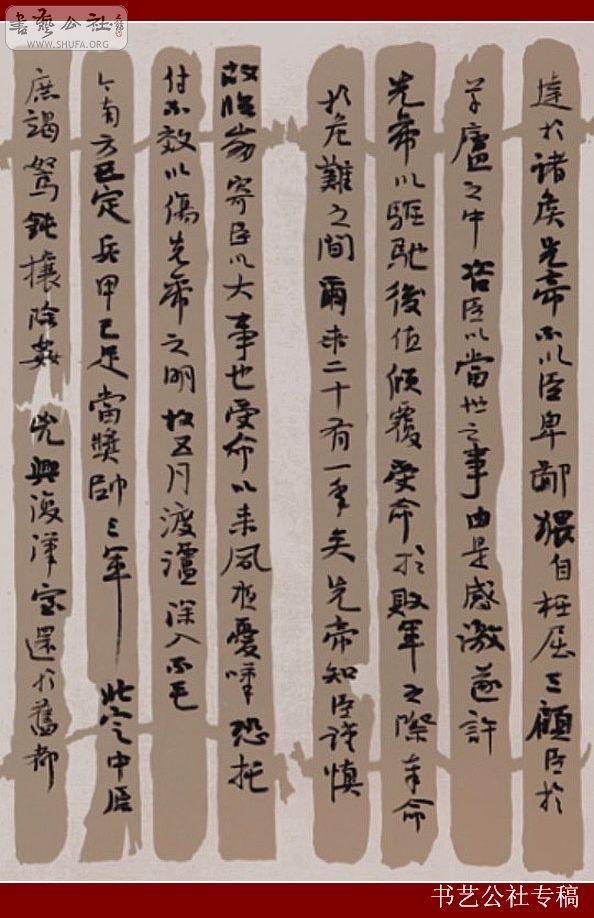 書藝公社
WWW.SHUFA.ORG
達於諸侯先帝不以臣卑鄙猥自枉屈三顧臣於
草廬之中咨臣以當世之事由是感激遂許
先帝以驅馳後值傾覆受命於敗軍之際奉命
於危難之間爾來二十有一年矣先帝知臣謹慎
故臨崩寄臣以大事也受命以來夙夜憂嘆恐托
付不效以傷先帝之明故五月渡瀘深入不毛
今南方已定兵甲已足當獎帥三軍北定中原
庶竭駑鈍攘除姦兇興復漢室還於舊都
书艺公社专稿